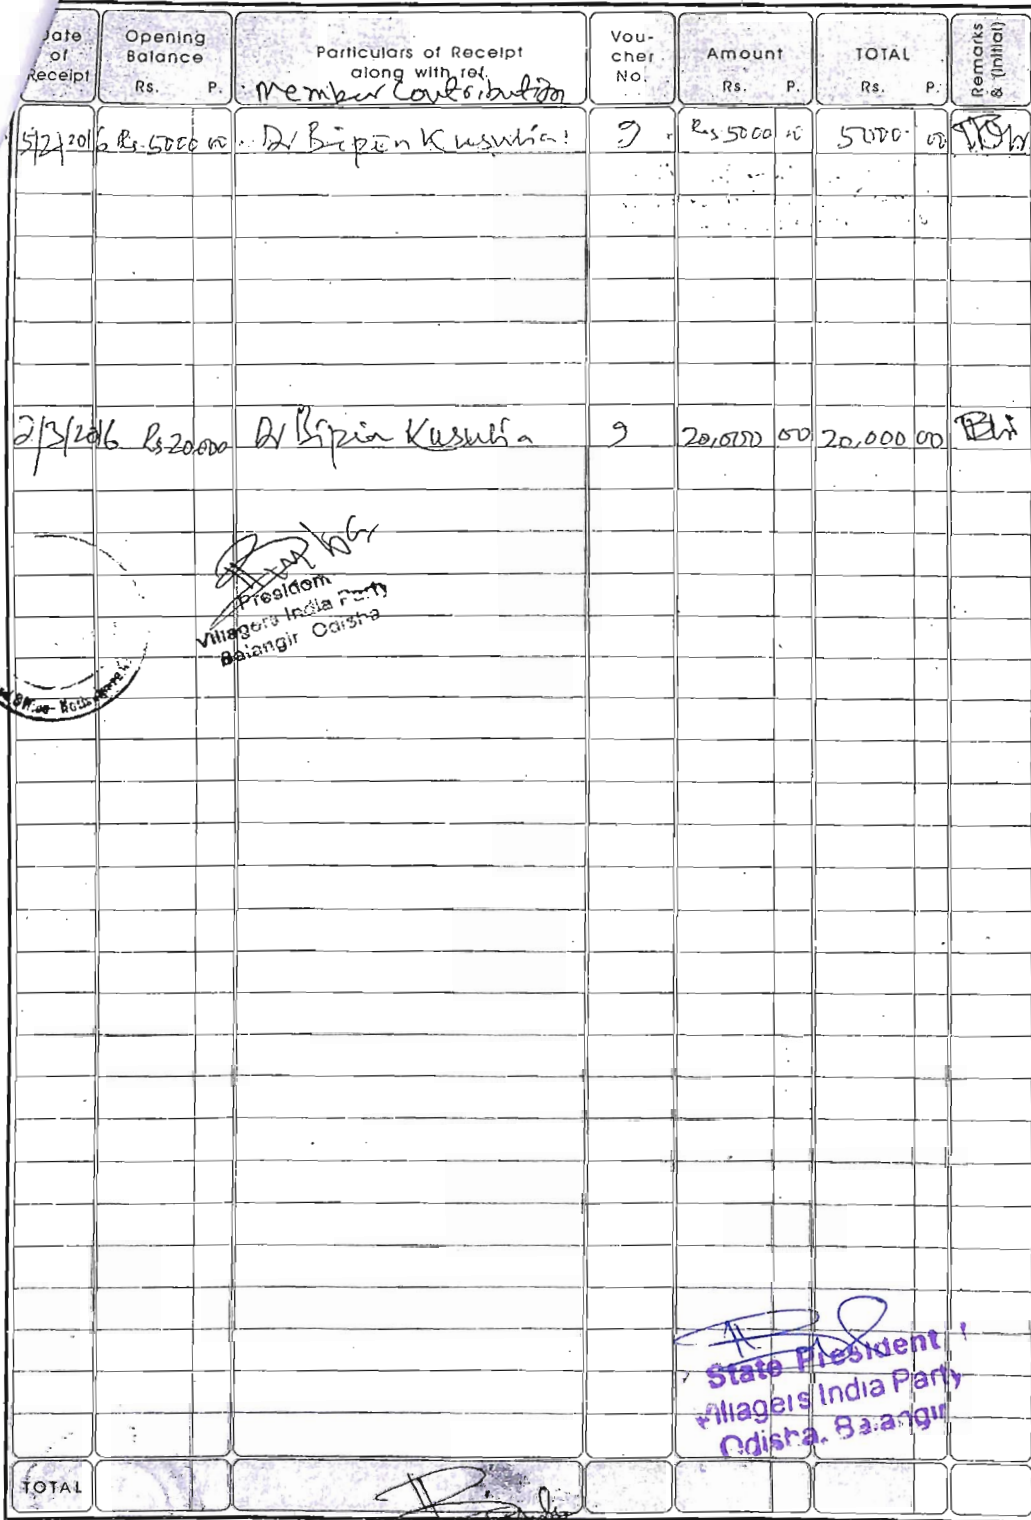 Date of Receipt Opening Balance Rs. P. Particulars of Receipt along with ref. Voucher No. Amount Rs. P. TOTAL Rs. P. Remarks & (Initial)
Member Contribution
5/2/2016 Rs. 5000 00 Dr Bipin Kusulia 9 Rs 5000 00 5000 00
2/3/2016 Rs 20,000 Dr Bipin Kusulia 9 20,000 00 20,000 00
President
Villagers India Party
Balangir Odisha
State President
Villagers India Party
Odisha. Balangir
TOTAL